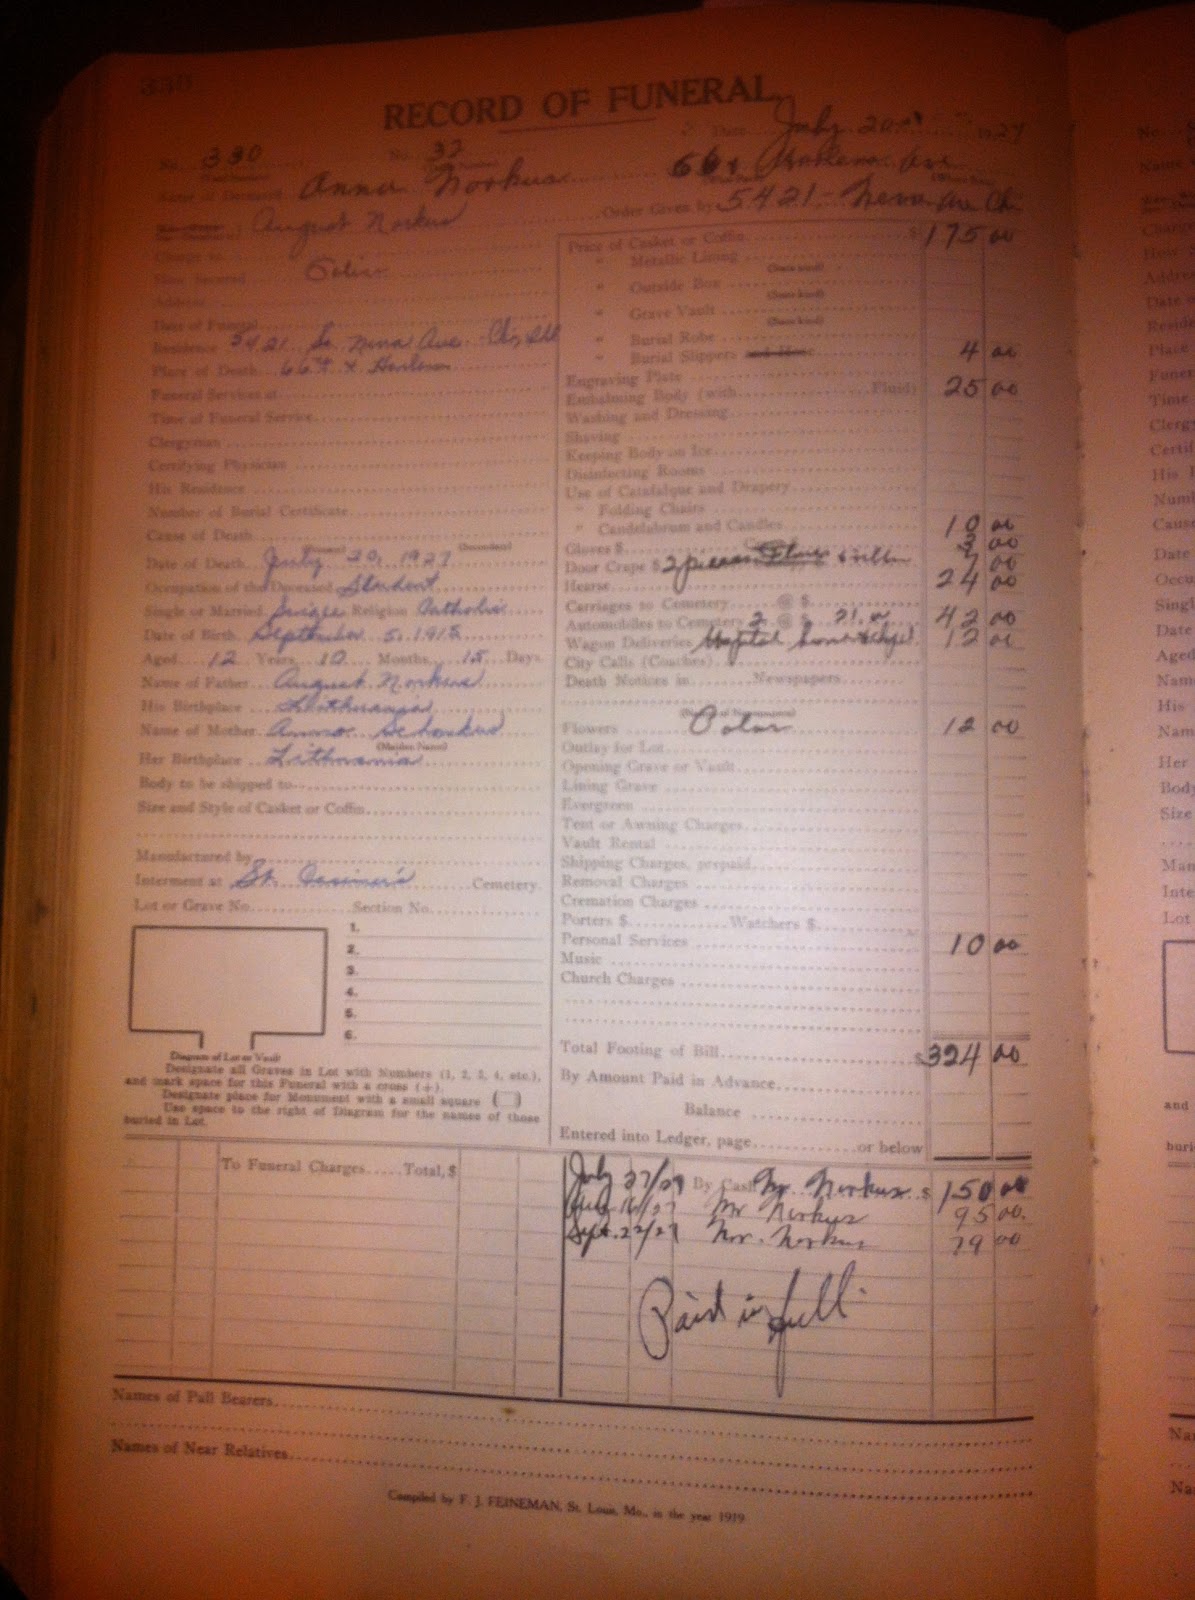 330
RECORD OF FUNERAL
Date July 20 1927
No. 330 No. 32
Name of Deceased Anna Norkus
August Norkus Order Given by 5421
Charge to
How Secured
Address
Date of Funeral
Residence So. Nena Ave. Chi, Ill
Place of Death 66th & Harlem
Funeral Services at
Time of Funeral Service
Clergyman
Certifying Physician
His Residence
Number of Burial Certificate
Cause of Death
Date of Death July 20, 1927
Occupation of the Deceased Student
Single or Married Single Religion Catholic
Date of Birth September 5, 1915
Aged 12 Years 10 Months 15 Days
Name of Father August Norkus
His Birthplace Lithuania
Name of Mother
(Maiden Name)
Her Birthplace Lithuania
Body to be shipped to
Size and Style of Casket or Coffin
Manufactured by
Interment at St. Casimer's Cemetery
Lot or Grave No. Section No.
1.
2.
3.
4.
5.
6.
Diagram of Lot or Vault
Designate all Graves in Lot with Numbers (1, 2, 3, 4, etc.),
and mark space for this Funeral with a cross (+).
Designate place for Monument with a small square
Use space to the right of Diagram for the names of those
buried in Lot.
Price of Casket or Coffin $ 175 00
" Metallic Lining
" Outside Box
" Grave Vault
" Burial Robe
" Burial Slippers and Hose 4 00
Engraving Plate
Embalming Body (with Fluid) 25 00
Washing and Dressing
Shaving
Keeping Body on Ice
Disinfecting Rooms
Use of Catafalque and Drapery
" Folding Chairs
" Candelabrum and Candles 10 00
Gloves $
Door Crape $
Hearse 24 00
Carriages to Cemetery @ $
Automobiles to Cemetery 2 @ $ 21.00 42 00
Wagon Deliveries 12 00
City Calls (Coaches)
Death Notices in Newspapers
Flowers 12 00
Outlay for Lot
Opening Grave or Vault
Lining Grave
Evergreen
Tent or Awning Charges
Vault Rental
Shipping Charges, prepaid
Removal Charges
Cremation Charges
Porters $ Watchers $
Personal Services 10 00
Music
Church Charges
Total Footing of Bill $ 324 00
By Amount Paid in Advance
Balance
Entered into Ledger, page or below
To Funeral Charges Total, $
July 27/27 By Cash Mr. Norkus $ 150 00
Aug 16/27 Mr Norkus 95 00
Sept. 22/27 Mr. Norkus 79 00
Paid in full
Names of Pall Bearers
Names of Near Relatives
Compiled by F. J. FEINEMAN, St. Louis, Mo., in the year 1919